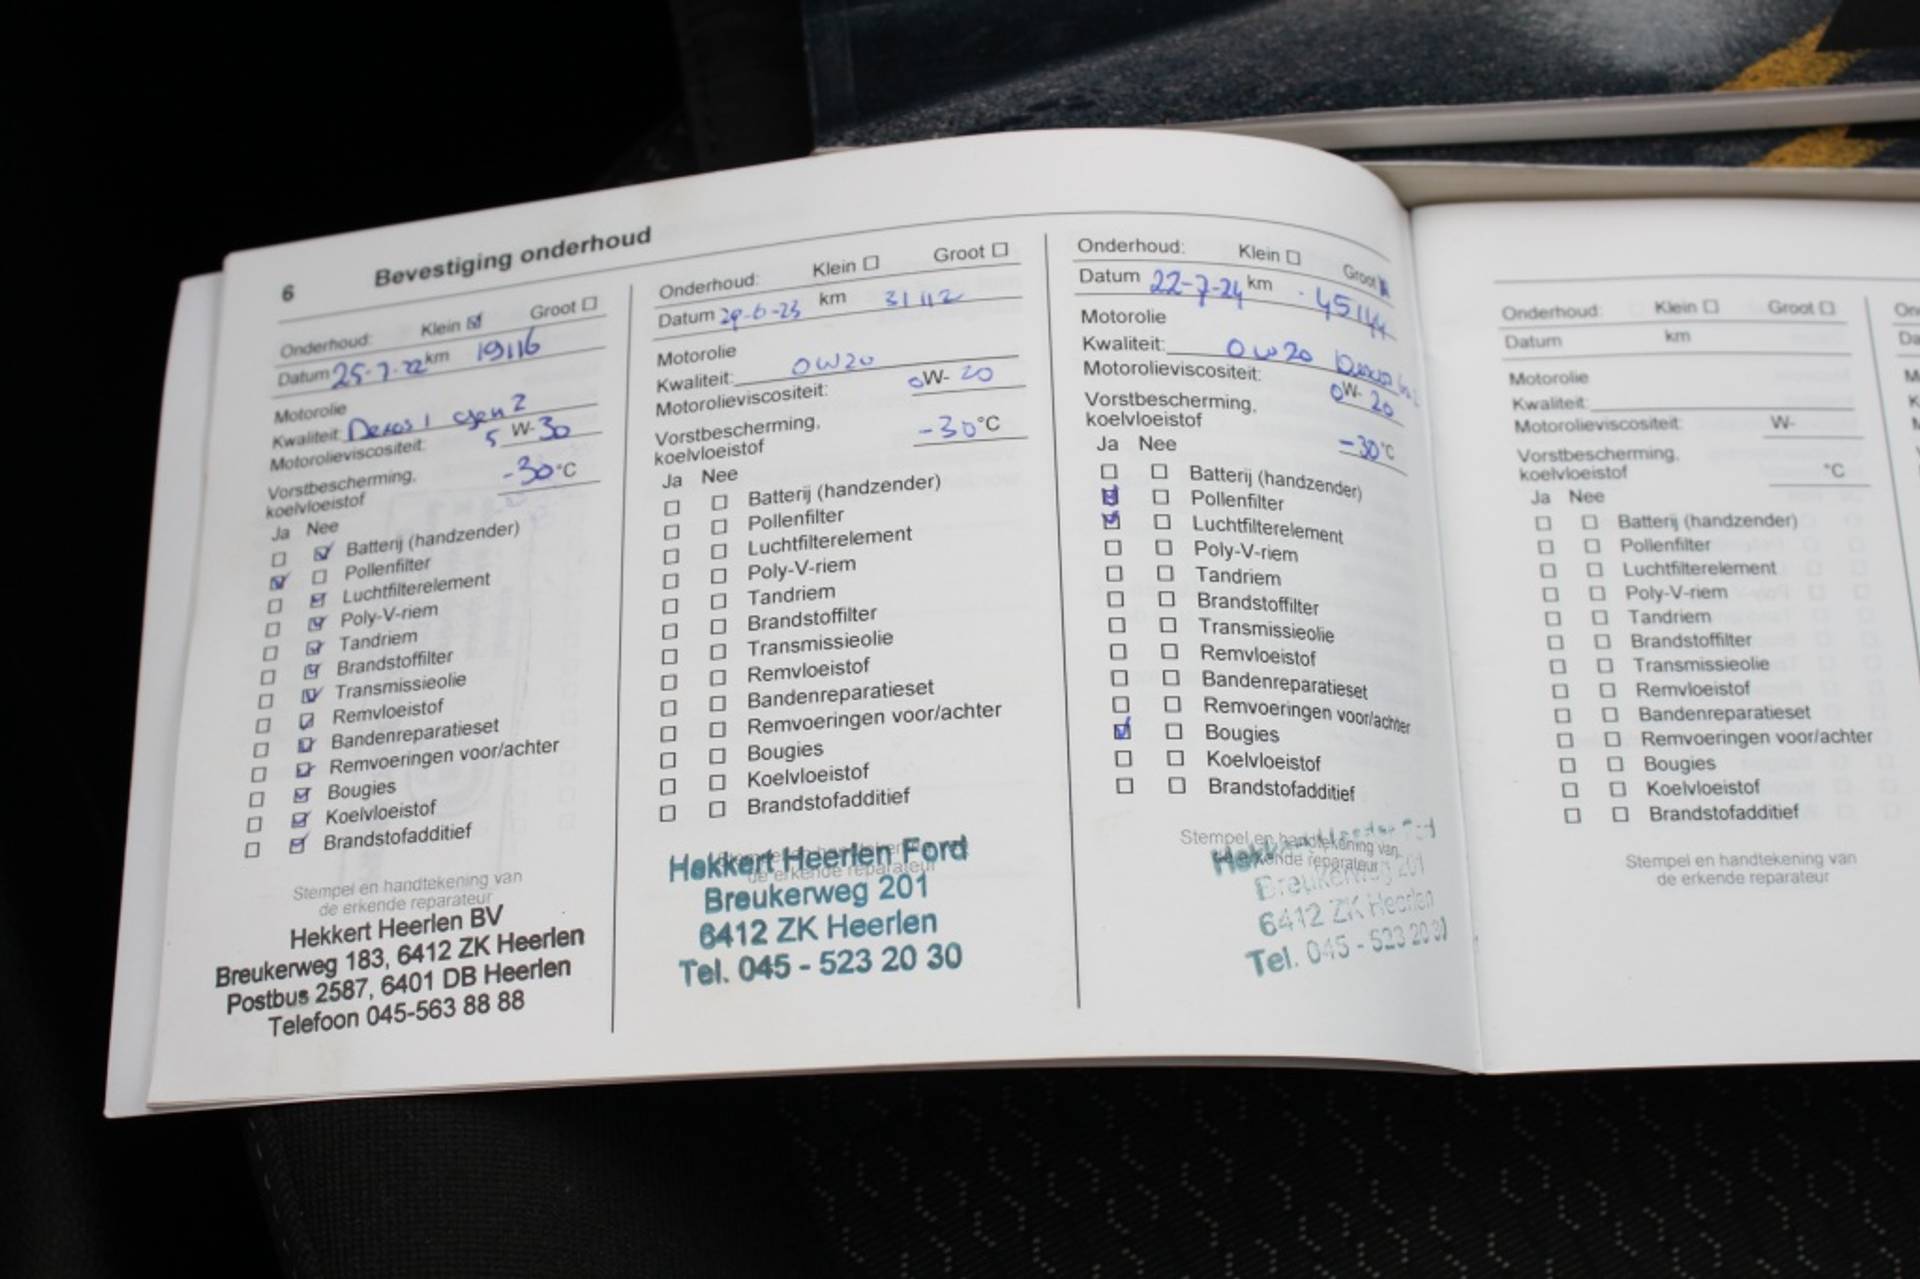 6 Bevestiging onderhoud
Onderhoud: Klein ☑ Groot ☐
Datum 25-7-22 km 19116
Motorolie
Kwaliteit: Dexos 1 gen 2
Motorolieviscositeit: 5 W- 30
Vorstbescherming,
koelvloeistof -30 °C
Ja Nee
☐ ☑ Batterij (handzender)
☑ ☐ Pollenfilter
☐ ☑ Luchtfilterelement
☐ ☑ Poly-V-riem
☐ ☑ Tandriem
☐ ☑ Brandstoffilter
☐ ☑ Transmissieolie
☐ ☑ Remvloeistof
☐ ☑ Bandenreparatieset
☐ ☑ Remvoeringen voor/achter
☐ ☑ Bougies
☐ ☑ Koelvloeistof
☐ ☑ Brandstofadditief
Stempel en handtekening van
de erkende reparateur
Hekkert Heerlen BV
Breukerweg 183, 6412 ZK Heerlen
Postbus 2587, 6401 DB Heerlen
Telefoon 045-563 88 88
Onderhoud: Klein ☐ Groot ☐
Datum 29-6-23 km 31112
Motorolie
Kwaliteit: 0W20
Motorolieviscositeit: 0 W- 20
Vorstbescherming,
koelvloeistof -30 °C
Ja Nee
☐ ☐ Batterij (handzender)
☐ ☐ Pollenfilter
☐ ☐ Luchtfilterelement
☐ ☐ Poly-V-riem
☐ ☐ Tandriem
☐ ☐ Brandstoffilter
☐ ☐ Transmissieolie
☐ ☐ Remvloeistof
☐ ☐ Bandenreparatieset
☐ ☐ Remvoeringen voor/achter
☐ ☐ Bougies
☐ ☐ Koelvloeistof
☐ ☐ Brandstofadditief
Stempel en handtekening van
de erkende reparateur
Hekkert Heerlen Ford
Breukerweg 201
6412 ZK Heerlen
Tel. 045 - 523 20 30
Onderhoud: Klein ☐ Groot ☑
Datum 22-7-24 km 45144
Motorolie
Kwaliteit: 0W20
Motorolieviscositeit: 0 W- 20
Vorstbescherming,
koelvloeistof -30 °C
Ja Nee
☐ ☐ Batterij (handzender)
☑ ☐ Pollenfilter
☑ ☐ Luchtfilterelement
☐ ☐ Poly-V-riem
☐ ☐ Tandriem
☐ ☐ Brandstoffilter
☐ ☐ Transmissieolie
☐ ☐ Remvloeistof
☐ ☐ Bandenreparatieset
☐ ☐ Remvoeringen voor/achter
☑ ☐ Bougies
☐ ☐ Koelvloeistof
☐ ☐ Brandstofadditief
Stempel en handtekening van
de erkende reparateur
Hekkert Heerlen Ford
Breukerweg 201
6412 ZK Heerlen
Tel. 045 - 523 20 30
Onderhoud: Klein ☐ Groot ☐
Datum km
Motorolie
Kwaliteit:
Motorolieviscositeit: W-
Vorstbescherming,
koelvloeistof °C
Ja Nee
☐ ☐ Batterij (handzender)
☐ ☐ Pollenfilter
☐ ☐ Luchtfilterelement
☐ ☐ Poly-V-riem
☐ ☐ Tandriem
☐ ☐ Brandstoffilter
☐ ☐ Transmissieolie
☐ ☐ Remvloeistof
☐ ☐ Bandenreparatieset
☐ ☐ Remvoeringen voor/achter
☐ ☐ Bougies
☐ ☐ Koelvloeistof
☐ ☐ Brandstofadditief
Stempel en handtekening van
de erkende reparateur